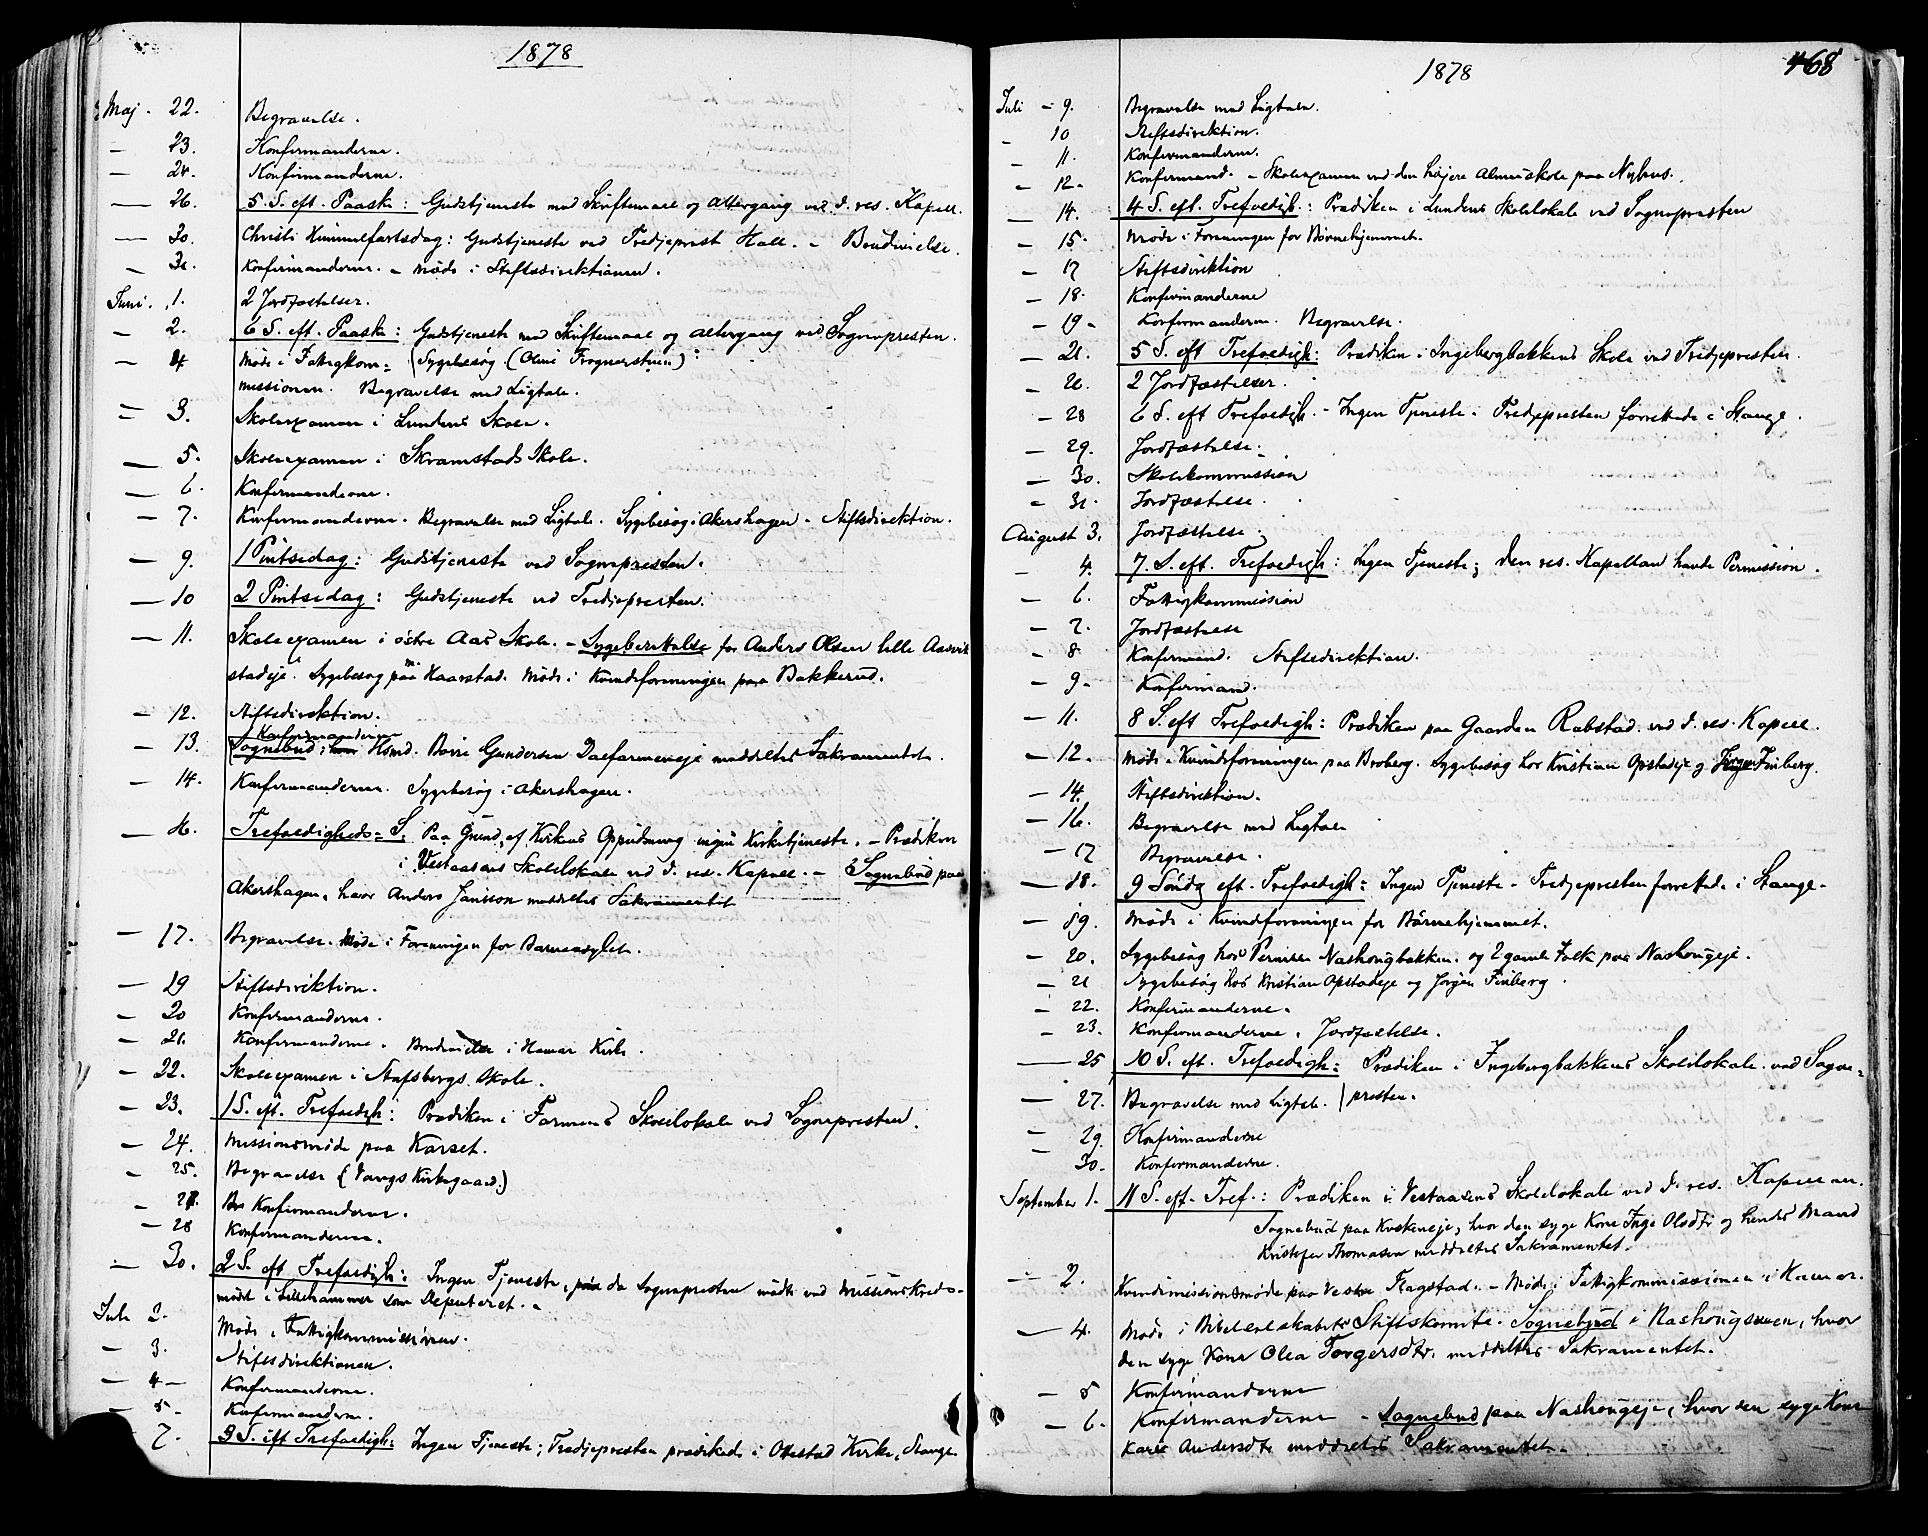 1878
Maj. 22. Begravelse.
— 23. Konfirmanderne.
— 24. Konfirmanderne.
— 26. 5. S. eft. Paaske: Gudstjeneste med Skriftemaal og Altergang ved d. res. Kapell.
— 30. Christi Himmelfartsdag: Gudstjeneste ved Tredjeprest Hall. – Brudevielse.
— 31. Konfirmanderne. – Møde i Stiftsdirektionen.
Juni. 1. 2 Jordfæstelser.
— 2. 6 S. eft. Paaske: Gudstjeneste med Skriftemaal og Altergang ved Sognepresten.
— 4 Møde i Fattigkom= (Sygebesøg (Oline Frognerstuen)
missionen. Begravelse med Ligtale.
— 3. Skoleexamen i Lundens Skole.
— 5. Skoleexamen i Skramstads Skole.
— 6. Konfirmanderne.
— 7. Konfirmanderne. Begravelse med Ligtale. Sygebesøg i Akershagen – Stiftsdirektion.
— 9. 1 Pintsedag: Gudstjeneste ved Sognepresten.
— 10 2 Pintsedag: Gudstjeneste ved Tredjepresten.
— 11. Skoleexamen i østre Aas Skole. – Sygeberettelse for Anders Olsen lille
stadeje. Sygebesøg paa Haarstad. Møde i Kvindeforeningen paa Bakkerud.
— 12. Stiftsdirektion.
Konfirmanderne
— 13. Sognebud: hvor Hsmd. Børre Gundersen meddeltes Sakramentet.
— 14. Konfirmanderne. Sygebesøg i Akershagen.
— 16. Trefoldigheds=S. Paa Grund af Kirkens Oppudsning ingen Kirketjeneste. – Prædiken
i Vestaasens Skolelokale ved d. res. Kapell. – Sognebud paa
Akershagen, hvor Anders Jansson meddeltes Sakramentet
— 17. Begravelse. Møde i Foreningen for Barneasylet.
— 19 Stiftsdirektion.
— 20 Konfirmanderne.
— 21. Konfirmanderne. Brudevielse i Hamar Kirke.
— 22. Skoleexamen i Stafsbergs Skole.
— 23. 1 S. eft. Trefoldigh: Prædiken i Farmens Skolelokale ved Sognepresten.
— 24. Missionsmøde paa Karset.
— 25. Begravelse (Vangs Kirkegaard.)
— 27. Konfirmanderne.
— 28 Konfirmanderne.
— 30. 2 S. eft. Trefoldigh: Ingen Tjeneste, da Sognepresten mødte ved Missionskreds-
mødet i Lillehammer som Deputeret.
Juli 2. Møde i Fattigkommissionen.
— 3. Stiftsdirektionen.
— 4 – Konfirmanderne.
— 5 – Konfirmanderne.
— 7. 3 S. eft Trefoldigh: Ingen Tjeneste; Tredjepresten prædikede i Ottestad Kirke, Stange
1878 468
Juli – 9. Begravelse med Ligtale.
– 10 Stiftsdirektion.
– 11. Konfirmanderne.
– 12. Konfirmand. – Skoleexamen ved den højere Almueskole paa Nyhus.
– 14. 4 S. eft. Trefoldigh: Prædiken i Lundens Skolelokale ved Sognepresten
– 15. Møde i Foreningen for Børnehjemmet.
– 17 Stiftsdirektion
– 18. Konfirmanderne
– 19 – Konfirmanderne. Begravelse.
– 21. 5 S. eft Trefoldigh: Prædiken i Ingebergbakkens Skole ved Tredjepresten.
– 26. 2 Jordfæstelser.
– 28 6 S. eft Trefoldigh. – Ingen Tjeneste. Tredjepresten forrettede i Stange.
– 29. Jordfæstelse.
– 30. Skolekommission
– 31. Jordfæstelse.
August 3. Jordfæstelse.
– 4. 7. S. eft. Trefoldigh: Ingen Tjeneste; den res. Kapellan havde Permission.
– 6. Fattigkommission
– 7. Jordfæstelse
– 8. Konfirmand. Stiftsdirektion.
– 9 – Konfirmand.
– 11. 8 S. eft Trefoldigh: Prædiken paa Gaarden Rabstad ved d. res. Kapell.
– 12. Møde i Kvindeforeningen paa Broberg. Sygebesøg hos Kristian Opstadeje og Jørgen Finberg.
– 14. Stiftsdirektion.
– 16. Begravelse med Ligtale
– 17 Begravelse.
– 18. 9 Søndg eft. Trefoldigh: Ingen Tjeneste – Tredjepresten forrettede i Stange.
– 19. Møde i Kvindeforeningen for Børnehjemmet.
– 20. Sygebesøg hos Pernille Nashougbakken. og 2 gamle Folk paa Nashougeje.
– 21 Sygebesøg hos Kristian Opstadeje og Jørgen Finberg.
– 22. Konfirmanderne.
– 23. Konfirmanderne. Jordfæstelse.
– 25 10 S. eft. Trefoldigh: Prædiken i Ingebergbakkens Skolelokale ved Sogne=
– 27. Begravelse med Ligtale. / presten.
– 29. Konfirmanderne
30. Konfirmanderne.
September 1. 11 S. eft. Tref.: Prædiken i Vestaasens Skolelokale ved d. res. Kapellan.
Sognebud paa, hvor den syge Kone Inge Olsdtr og hendes Mand
Kristofer Thomassen meddeltes Sakramentet.
— 2. Kvindemissionsmøde paa Vestre Flagstad. – Møde i Fattigkommissionen i Hamar.
— 4. Møde i Bibelselskabets Stiftskomite. Sognebud i Nashougsveen, hvor
den syge Kone Olea Torgersdtr. meddeltes Sakramentet.
– 5 Konfirmanderne
– 6. Konfirmanderne – Sognebud paa Nashougeje, hvor den syge Kone
Kari Andersdtr meddeltes Sakramentet.